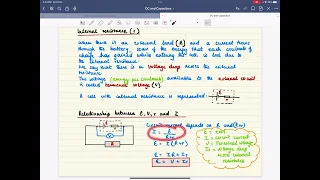 DC and Capacitors
Internal resistance (r)
When there is an external load (R) and a current flows
through the battery some of the energy that each coulomb of
charge has gained while entering the cell is lost due to
the internal resistance.
We say that there is a voltage drop across the internal
resistance
The voltage (energy per coulomb) available to the external circuit
is called terminal voltage (V).
A cell with internal resistance is represented:
Relationship between E, V, r and I
Circuit current depends on R and
I = E
R+r
E = I (R+r)
E = IR + Ir
E = V + Ir
E = emf
I = circuit current
V = Terminal voltage
Ir = Voltage drop
across internal
resistance